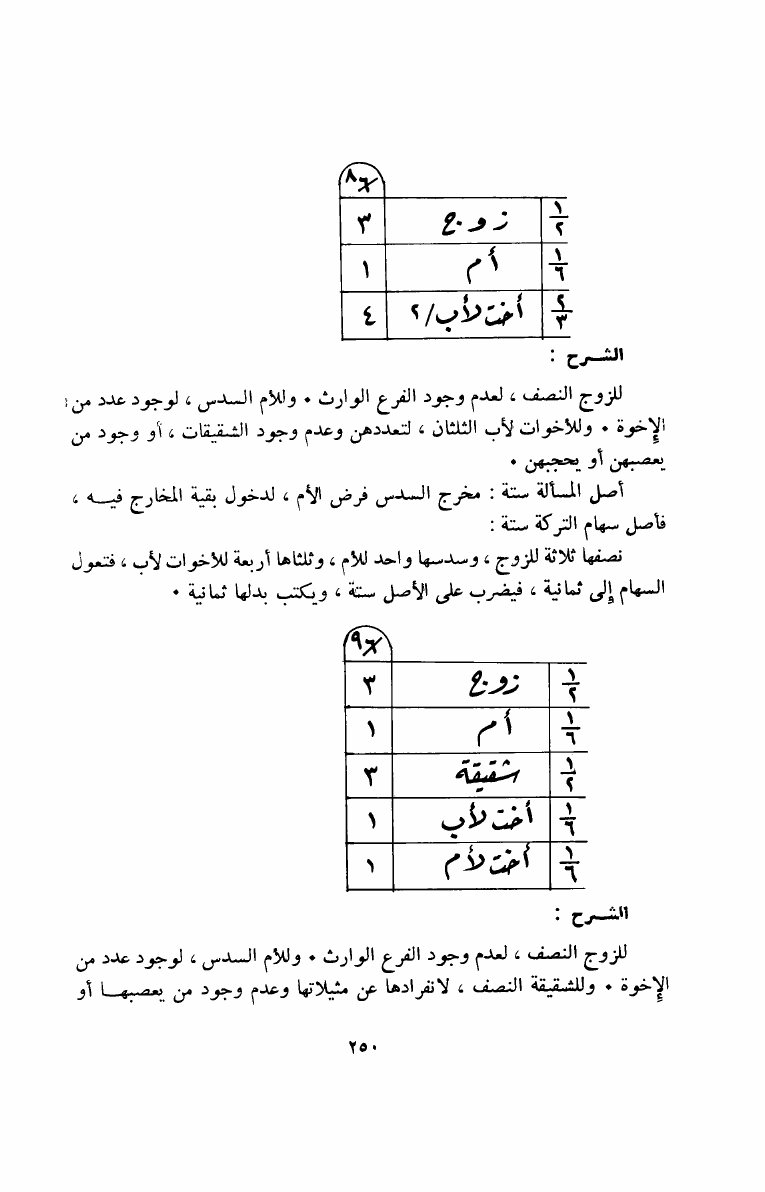 ٦ ٨
١/٢ زوج ٣
١/٦ أم ١
٢/٣ أخت لأب /٢ ٤
الشرح :
للزوج النصف ، لعدم وجود الفرع الوارث . وللأم السدس ، لوجود عدد من
الإخوة . وللأخوات لأب الثلثان ، لتعددهن وعدم وجود الشقيقات ، أو وجود من
يعصبهن أو يحجبهن .
أصل المسألة ستة : مخرج السدس فرض الأم ، لدخول بقية المخارج فيه ،
فأصل سهام التركة ستة :
نصفها ثلاثة للزوج ، وسدسها واحد للأم ، وثلثاها أربعة للأخوات لأب ، فتعول
السهام إلى ثمانية ، فيضرب على الأصل ستة ، ويكتب بدلها ثمانية .
٦ ٩
١/٢ زوج ٣
١/٦ أم ١
١/٢ شقيقة ٣
١/٦ أخت لأب ١
١/٦ أخت لأم ١
الشرح :
للزوج النصف ، لعدم وجود الفرع الوارث . وللأم السدس ، لوجود عدد من
الإخوة . وللشقيقة النصف ، لانفرادها عن مثيلاتها وعدم وجود من يعصبها أو
٢٥٠